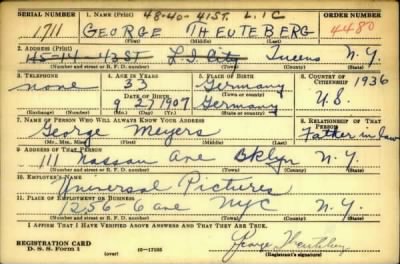 SERIAL NUMBER 1. NAME (Print) 48-40-41ST. L.I.C ORDER NUMBER
1711 GEORGE THEUTEBERG 4480
2. ADDRESS (Print)
45-14-43 ST L.I. City Queens N.Y.
(Number and street or R. F. D. number) (Town) (County) (State)
3. TELEPHONE 4. AGE IN YEARS 5. PLACE OF BIRTH 6. COUNTRY OF CITIZENSHIP
none 33 Germany 1936
DATE OF BIRTH
9 27 1907 Germany U.S.
(Exchange) (Number) (Mo.) (Day) (Yr.) (State or country)
7. NAME OF PERSON WHO WILL ALWAYS KNOW YOUR ADDRESS 8. RELATIONSHIP OF THAT PERSON
George Meyers Father in law
(Mr., Mrs., Miss) (First) (Middle) (Last)
9. ADDRESS OF THAT PERSON
111 Nassau Ave Bklyn N.Y.
(Number and street or R. F. D. number) (Town) (County) (State)
10. EMPLOYER'S NAME
Universal Pictures
11. PLACE OF EMPLOYMENT OR BUSINESS
1256-6 ave NYC N.Y.
(Number and street or R. F. D. number) (Town) (County) (State)
I AFFIRM THAT I HAVE VERIFIED ABOVE ANSWERS AND THAT THEY ARE TRUE.
REGISTRATION CARD George Theuteberg
D. S. S. Form 1 (over) 16-17105 (Registrant's signature)